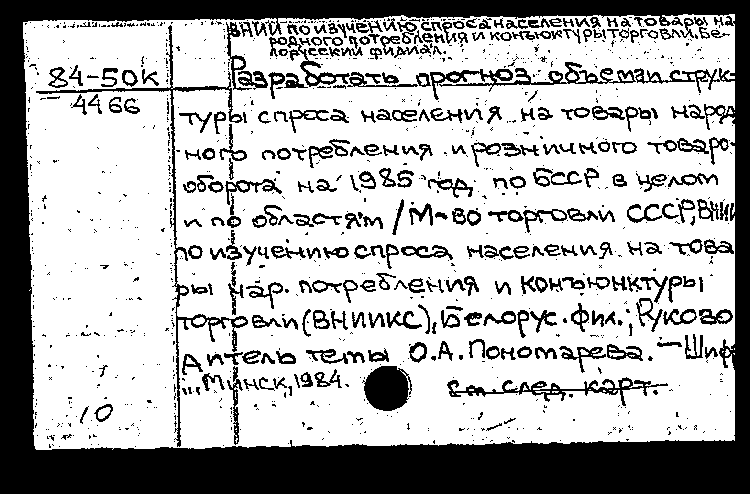 ВНИИ по изучению спроса населения на товары на-
родного потребления и конъюктуры торговли. Бе-
лорусский филиал.
84-50К
4466
Разработать прогноз объема и струк-
туры спроса населения на товары народ
ного потребления и розничного товаро-
оборота на 1985 год по БССР в целом
и по областям / М-во торговли СССР, ВНИИ
по изучению спроса населения на това
ры нар. потребления и конъюнктуры
торговли (ВНИИКС), Белорус. фил.; Руково
дитель темы О.А. Пономарева. - Шифр
... Минск, 1984.
См. след. карт.
10